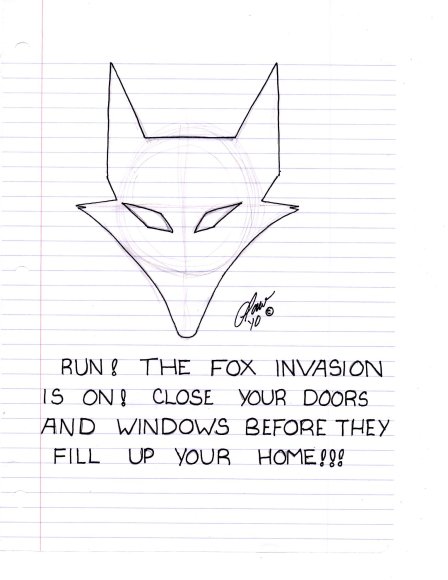 RUN! THE FOX INVASION
IS ON! CLOSE YOUR DOORS
AND WINDOWS BEFORE THEY
FILL UP YOUR HOME!!!